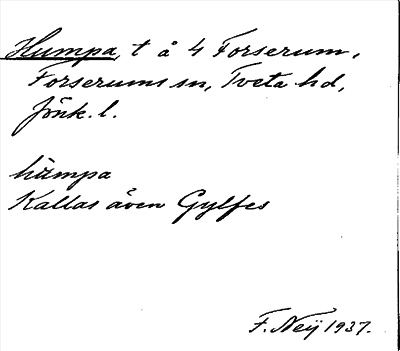 Humpa, t å 4 Forserum,
Forserums sn, Tveta hd,
Jönk. l.
hu̇mpa
Kallas även Gylfes
F. Neij 1937.